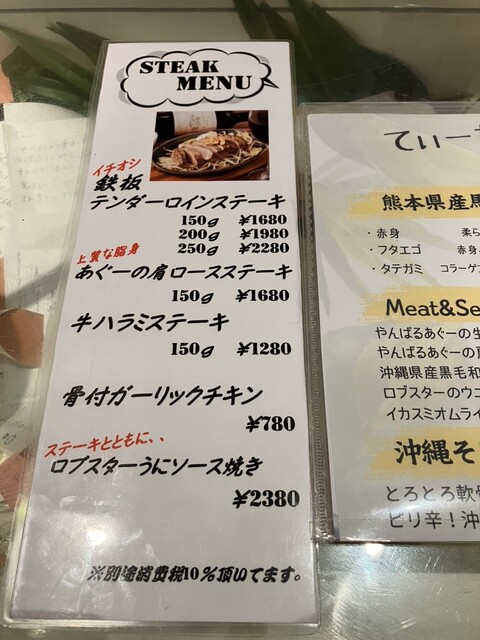 STEAK
MENU
イチオシ
鉄板
テンダーロインステーキ
150g ¥1680
200g ¥1980
250g ¥2280
上質な脂身
あぐーの肩ロースステーキ
150g ¥1680
牛ハラミステーキ
150g ¥1280
骨付ガーリックチキン
¥780
ステーキとともに、、
ロブスターうにソース焼き
¥2380
※別途消費税10%頂いてます。
てぃー
熊本県産馬
・赤身 柔ら
・フタエゴ 赤身
・タテガミ コラーゲ
Meat&Se
やんばるあぐーの生
やんばるあぐーの
沖縄県産黒毛和
ロブスターのウニ
イカスミオムライ
沖縄そ
とろとろ軟骨
ピリ辛！沖